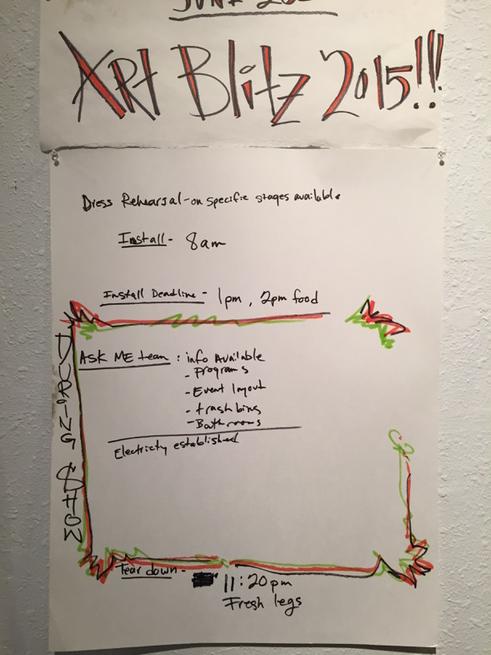 ART Blitz 2015!!!
Dress Rehearsal - on specific stages available
Install - 8am
Install Deadline - 1pm, 2pm food
DURING SHOW
ASK ME team : info Available
- Programs
- Event layout
- trash bins
- Bathrooms
Electricity established
Tear down - 11:20pm
Fresh legs